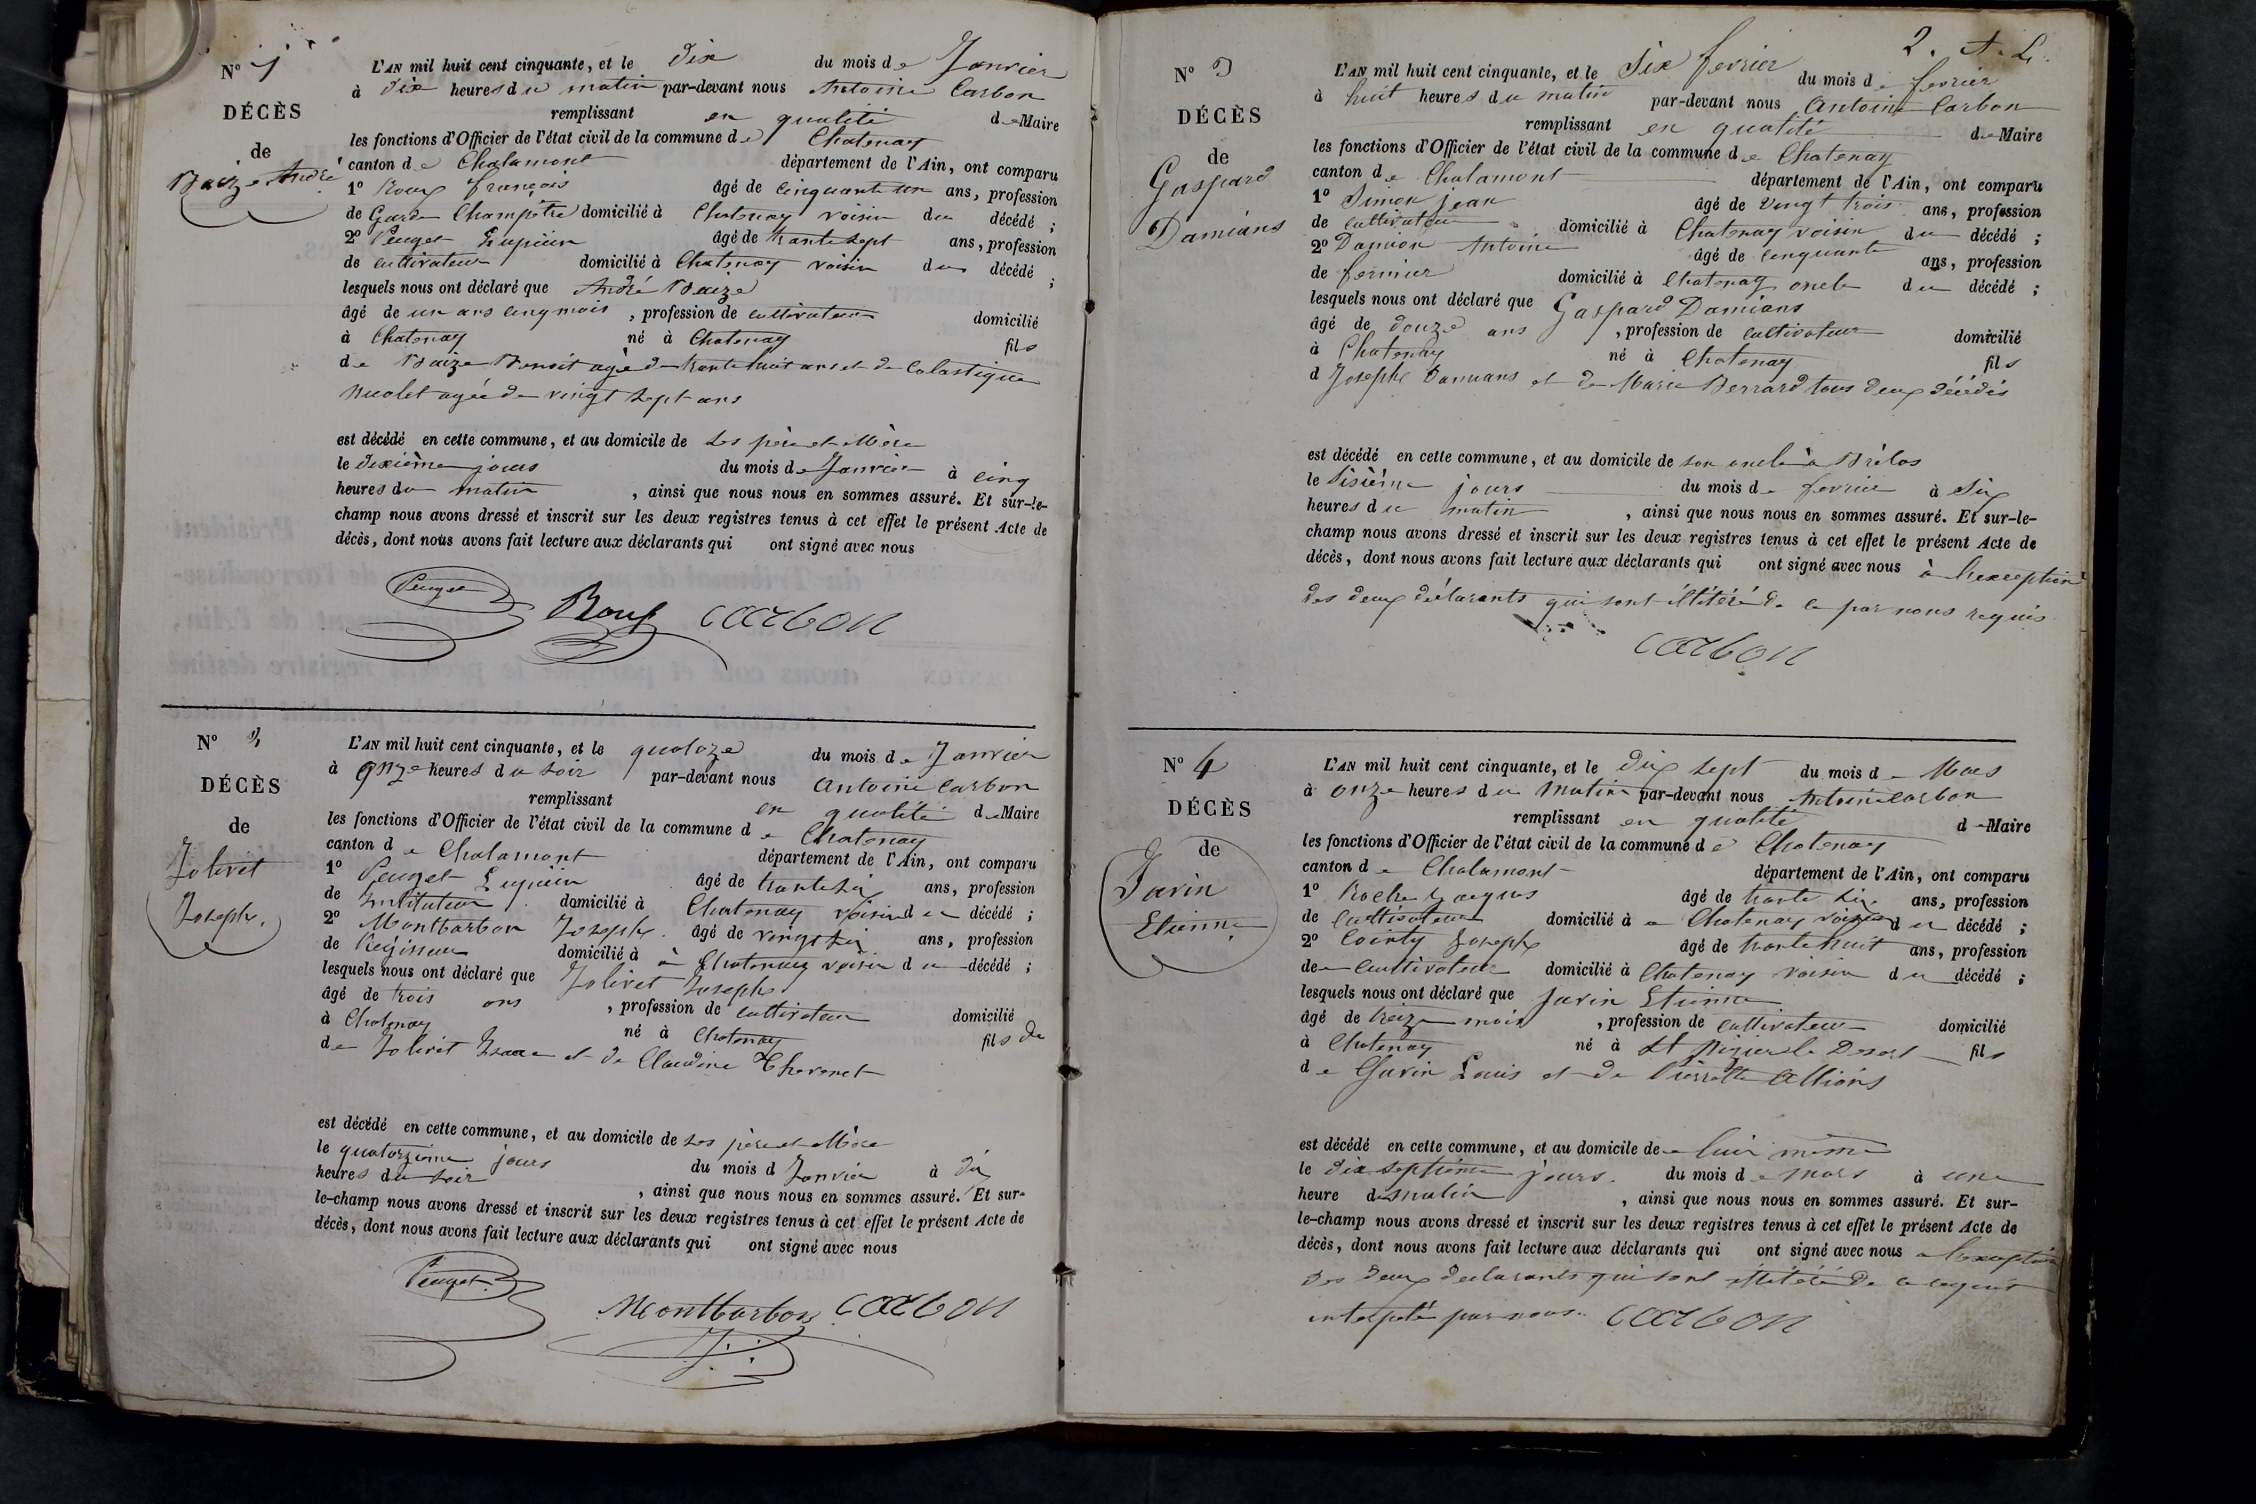 N° 1
DÉCÈS
de
Baize André
L'AN mil huit cent cinquante, et le dix du mois de Janvier
à dix heures du matin par-devant nous Antoine Carbon
remplissant en qualité de Maire
les fonctions d'Officier de l'état civil de la commune de Chatenay
canton de Chalamont département de l'Ain, ont comparu
1° Roux françois âgé de cinquante un ans, profession
de Garde Champêtre domicilié à Chatenay voisin du décédé ;
2° Peuget âgé de trante sept ans, profession
de cultivateur domicilié à Chatenay voisin du décédé ;
lesquels nous ont déclaré que André Baize
âgé de un ans cinq mois, profession de cultivateur domicilié
à Chatenay né à Chatenay fils
de Baize Benoit agé de trante huit ans et de Colastique
Nicolet agée de vingt sept ans
est décédé en cette commune, et au domicile de ses père et Mère
le dixième jours du mois de Janvier à cinq
heures du matin, ainsi que nous nous en sommes assuré. Et sur-le-
champ nous avons dressé et inscrit sur les deux registres tenus à cet effet le présent Acte de
décès, dont nous avons fait lecture aux déclarants qui ont signé avec nous
Peuget Roux Carbon
N° 2
DÉCÈS
de
Jolivet
Joseph.
L'AN mil huit cent cinquante, et le quatoze du mois de Janvier
à onze heures du soir par-devant nous Antoine Carbon
remplissant en qualité de Maire
les fonctions d'Officier de l'état civil de la commune de Chatenay
canton de Chalamont département de l'Ain, ont comparu
1° Peuget âgé de trante six ans, profession
de Instituteur domicilié à Chatenay voisin du décédé ;
2° Montbarbon Joseph. âgé de vingt six ans, profession
de Régisseur domicilié à à Chatenay voisin du décédé ;
lesquels nous ont déclaré que Jolivet Joseph
âgé de trois ans, profession de cultivateur domicilié
à Chatenay né à Chatenay fils de
de Jolivet Isaac et de Claudine Thevenet
est décédé en cette commune, et au domicile de ses père et Mère
le quatorzième jours du mois d Janvier à dix
heures du soir, ainsi que nous nous en sommes assuré. Et sur-
le-champ nous avons dressé et inscrit sur les deux registres tenus à cet effet le présent Acte de
décès, dont nous avons fait lecture aux déclarants qui ont signé avec nous
Peuget Montbarbon Carbon
2. A. L.
N° 3
DÉCÈS
de
Gaspard
Damians
L'AN mil huit cent cinquante, et le Six fevrier du mois de fevrier
à huit heures du matin par-devant nous Antoine Carbon
remplissant en qualité de Maire
les fonctions d'Officier de l'état civil de la commune de Chatenay
canton de Chalamont département de l'Ain, ont comparu
1° Simon jean âgé de vingt trois ans, profession
de cultivateur domicilié à Chatenay voisin du décédé ;
2° Damian Antoine âgé de cinquante ans, profession
de fermier domicilié à Chatenay oncle du décédé ;
lesquels nous ont déclaré que Gaspard Damians
âgé de douze ans, profession de cultivateur domicilié
à Chatenay né à Chatenay fils
d Joseph Damians et de Marie Berrard tous deux décédés
est décédé en cette commune, et au domicile de son oncle à
le Sisième jours du mois de fevrier à Six
heures du matin, ainsi que nous nous en sommes assuré. Et sur-le-
champ nous avons dressé et inscrit sur les deux registres tenus à cet effet le présent Acte de
décès, dont nous avons fait lecture aux déclarants qui ont signé avec nous à l'exception
des deux déclarants qui sont de ce par nous requis
Carbon
N° 4
DÉCÈS
de
Javin
Etienne
L'AN mil huit cent cinquante, et le dix sept du mois de Mars
à onze heures du Matin par-devant nous Antoine Carbon
remplissant en qualité de Maire
les fonctions d'Officier de l'état civil de la commune de Chatenay
canton de Chalamont département de l'Ain, ont comparu
1° Roche Jacques âgé de trante six ans, profession
de Cultivateur domicilié à Chatenay voisin du décédé ;
2° Joseph âgé de trante huit ans, profession
de Cultivateur domicilié à Chatenay voisin du décédé ;
lesquels nous ont déclaré que Javin Etienne
âgé de treize mois, profession de cultivateur domicilié
à Chatenay né à St Nizier le Desert fils
de Javin Louis et de Pierrette
est décédé en cette commune, et au domicile de luir même
le dix septième jours. du mois de Mars à une
heure du matin, ainsi que nous nous en sommes assuré. Et sur-
le-champ nous avons dressé et inscrit sur les deux registres tenus à cet effet le présent Acte de
décès, dont nous avons fait lecture aux déclarants qui ont signé avec nous a l'exception
des deux declarants qui sont de ce requis
par nous. Carbon